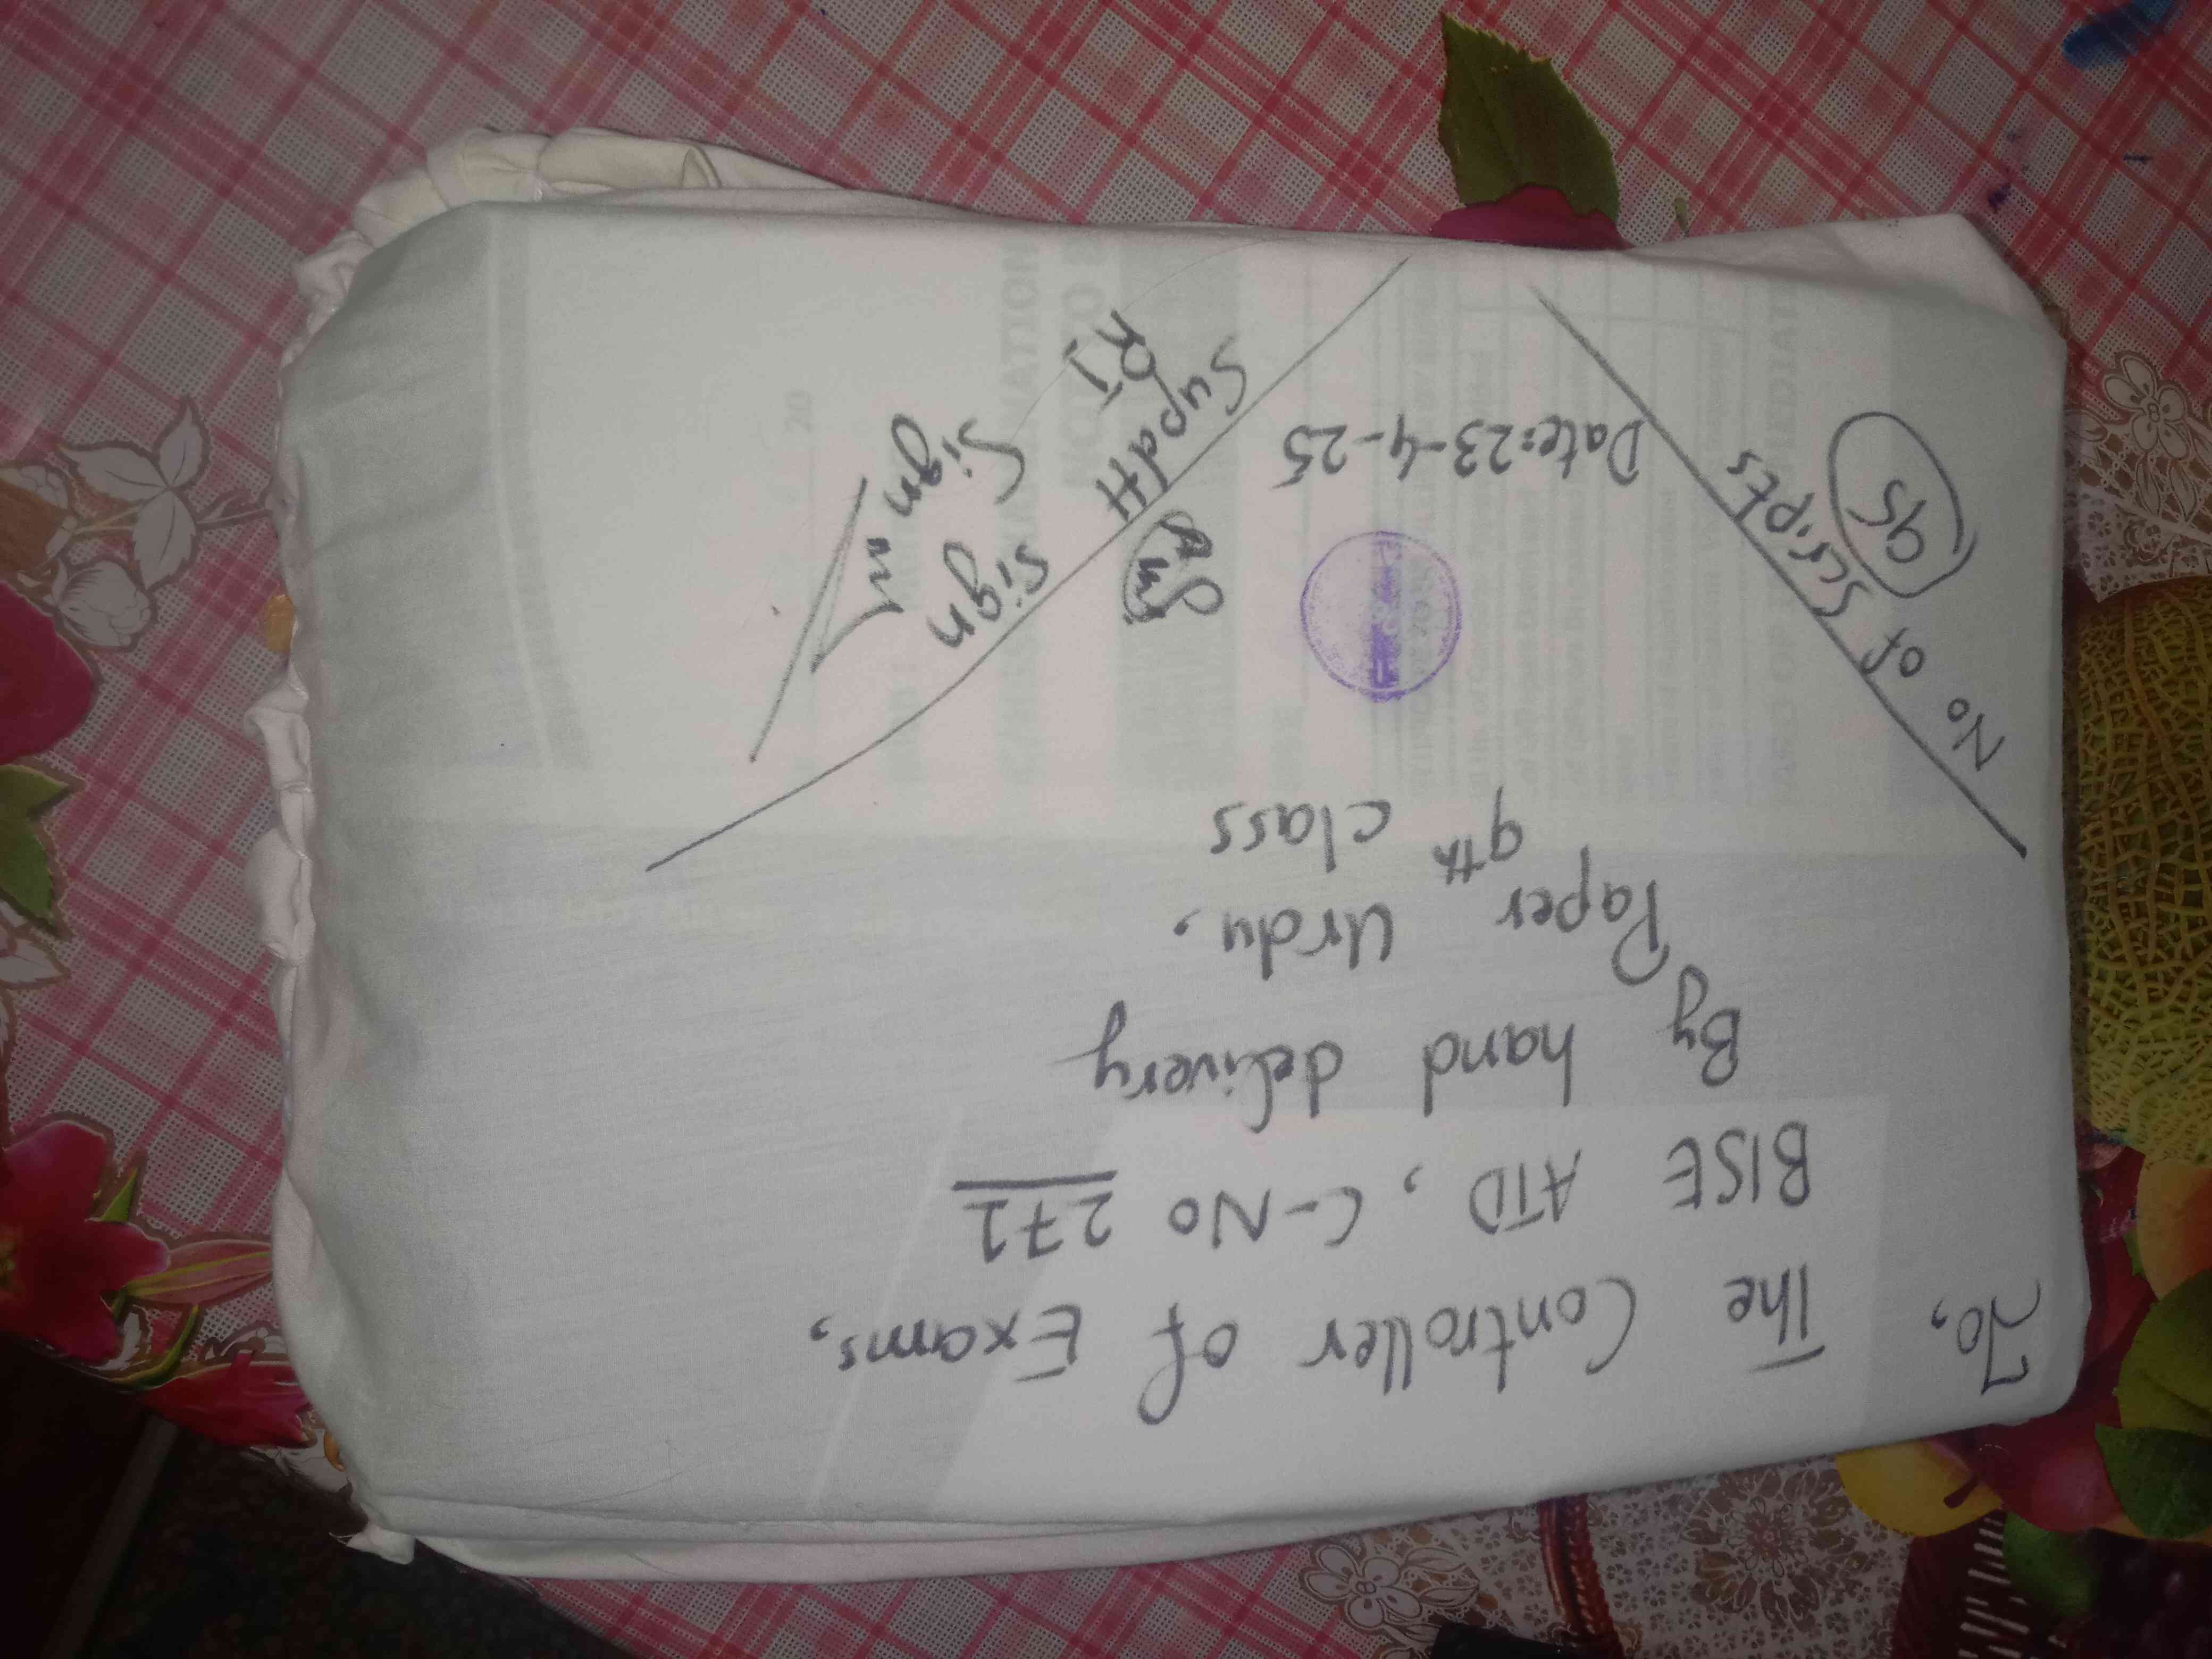 To,
The Controller of Exams,
BISE ATD, C-No 271
By hand delivery
Paper Urdu,
9th class
No of Scripts
95
Date: 23-4-25
Sign
Supdtt
Sign
RI